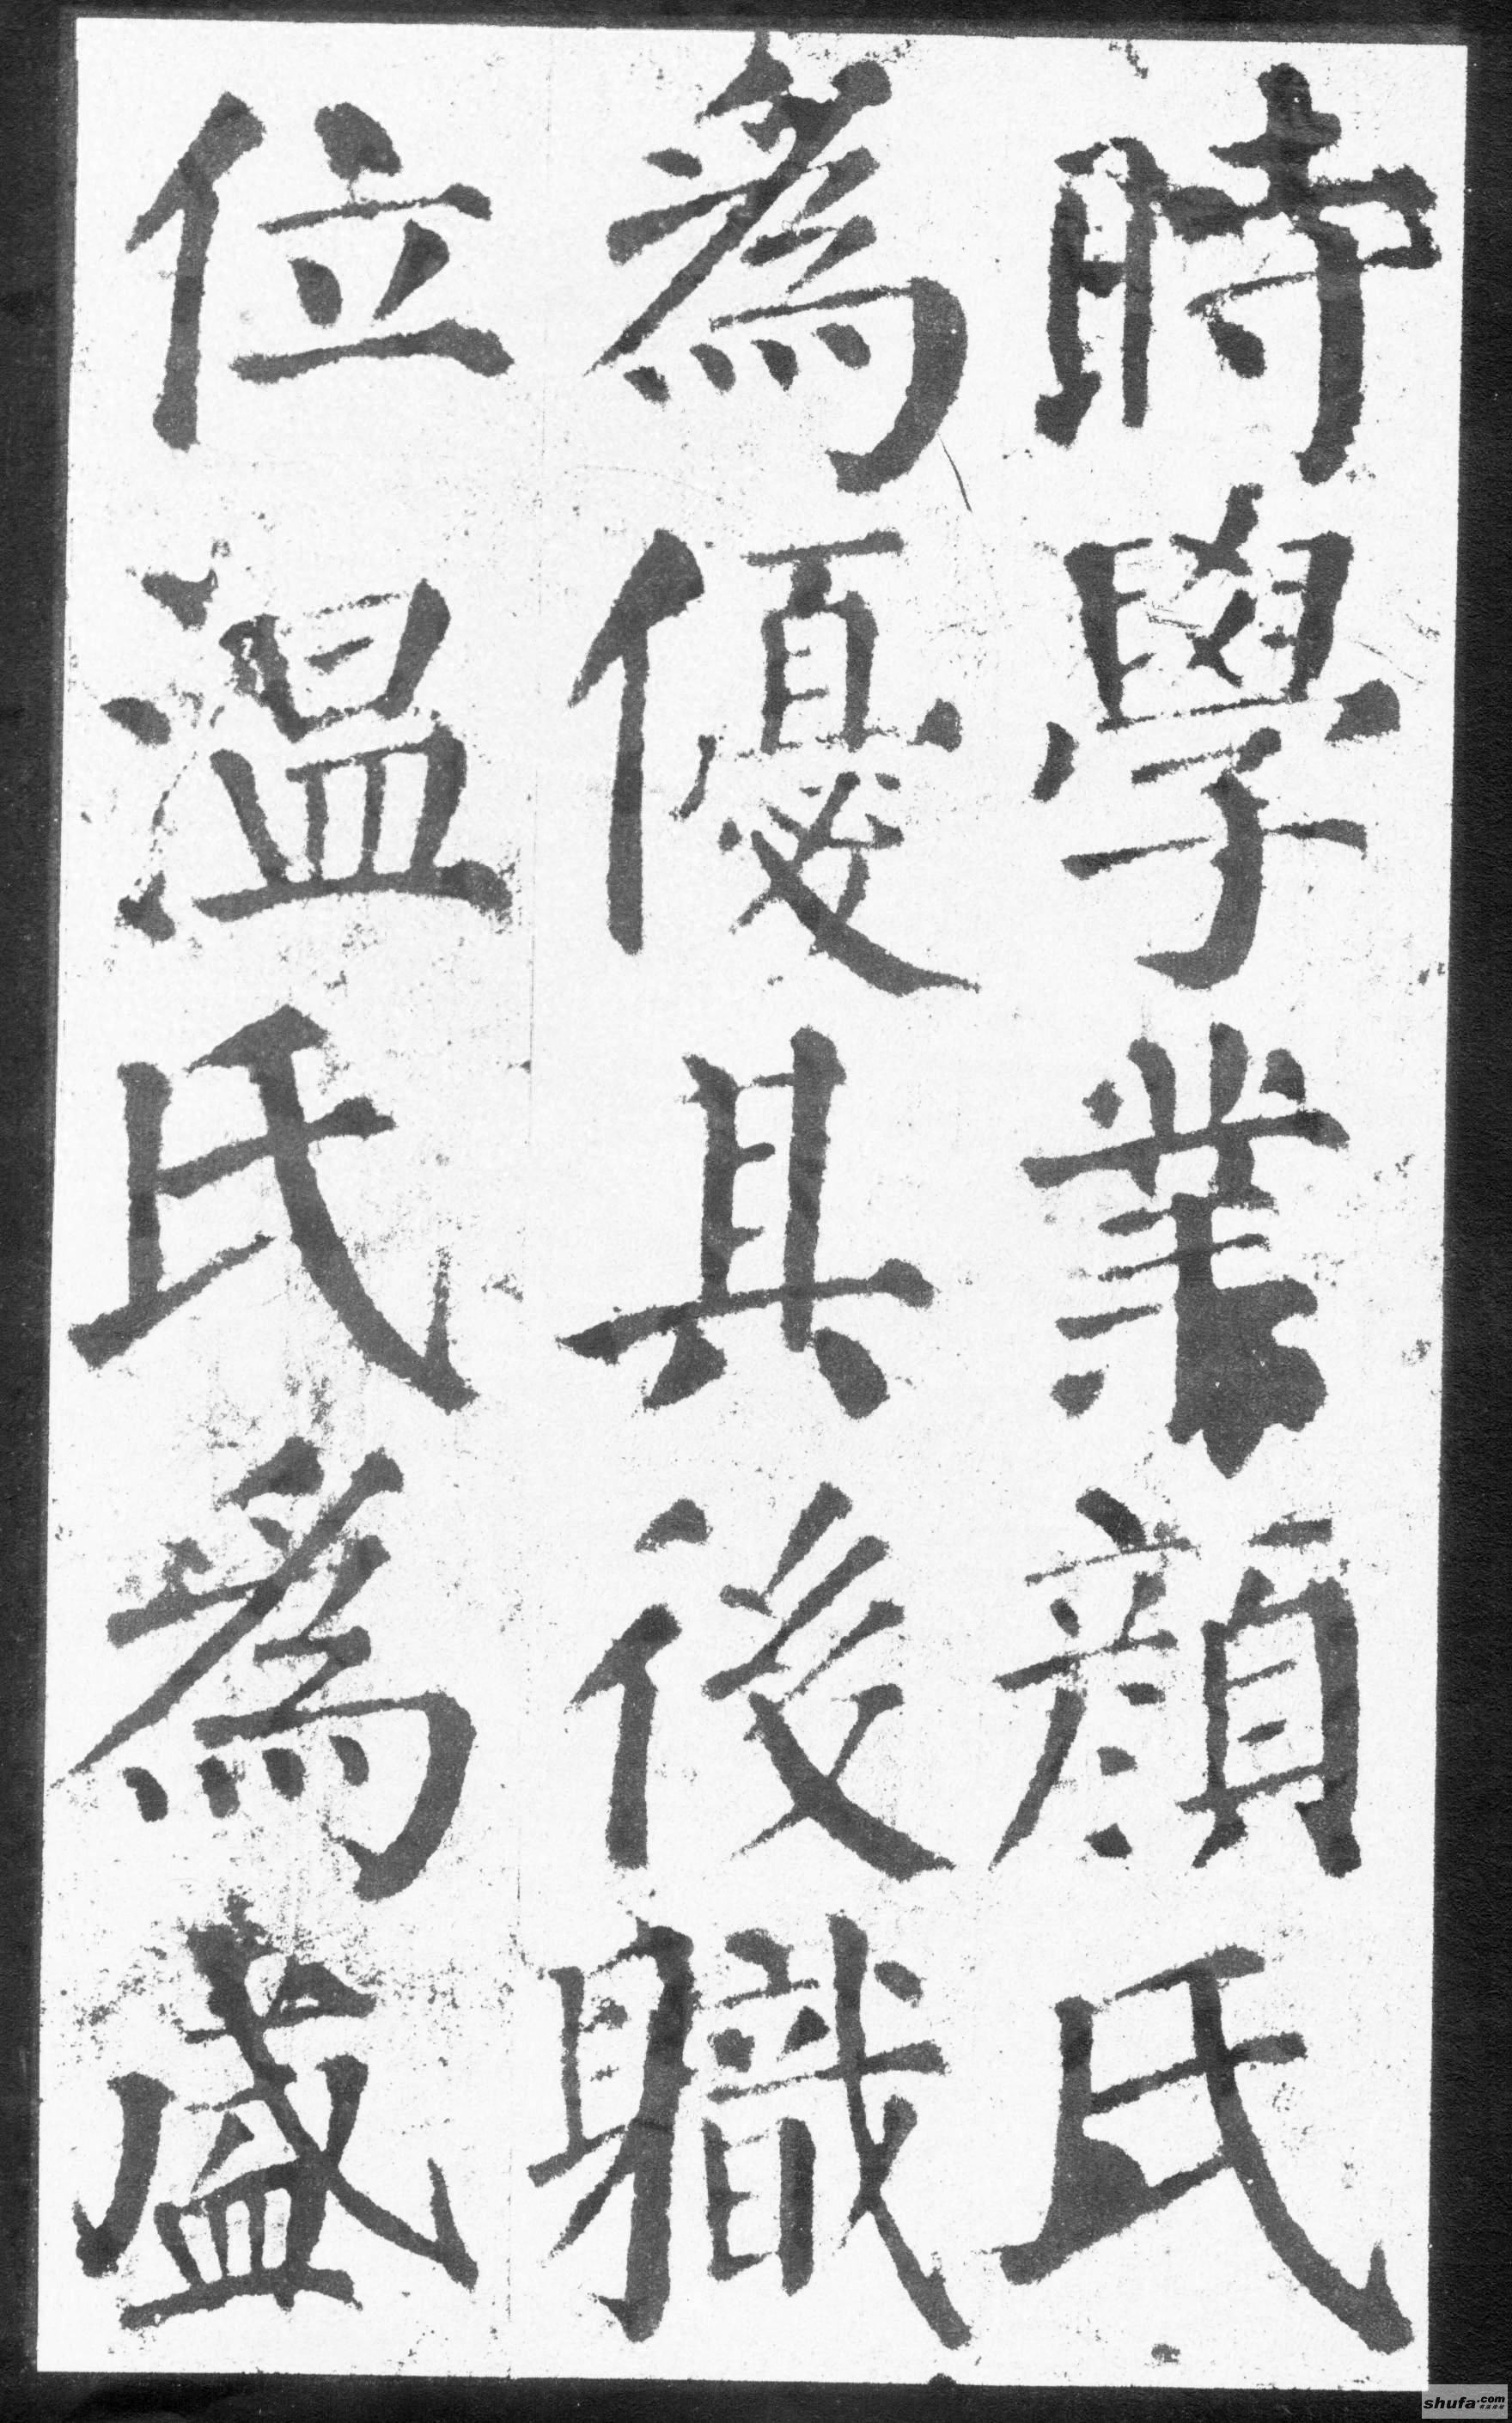 時學業顏氏
為優其後職
位溫氏為盛
shufa.com